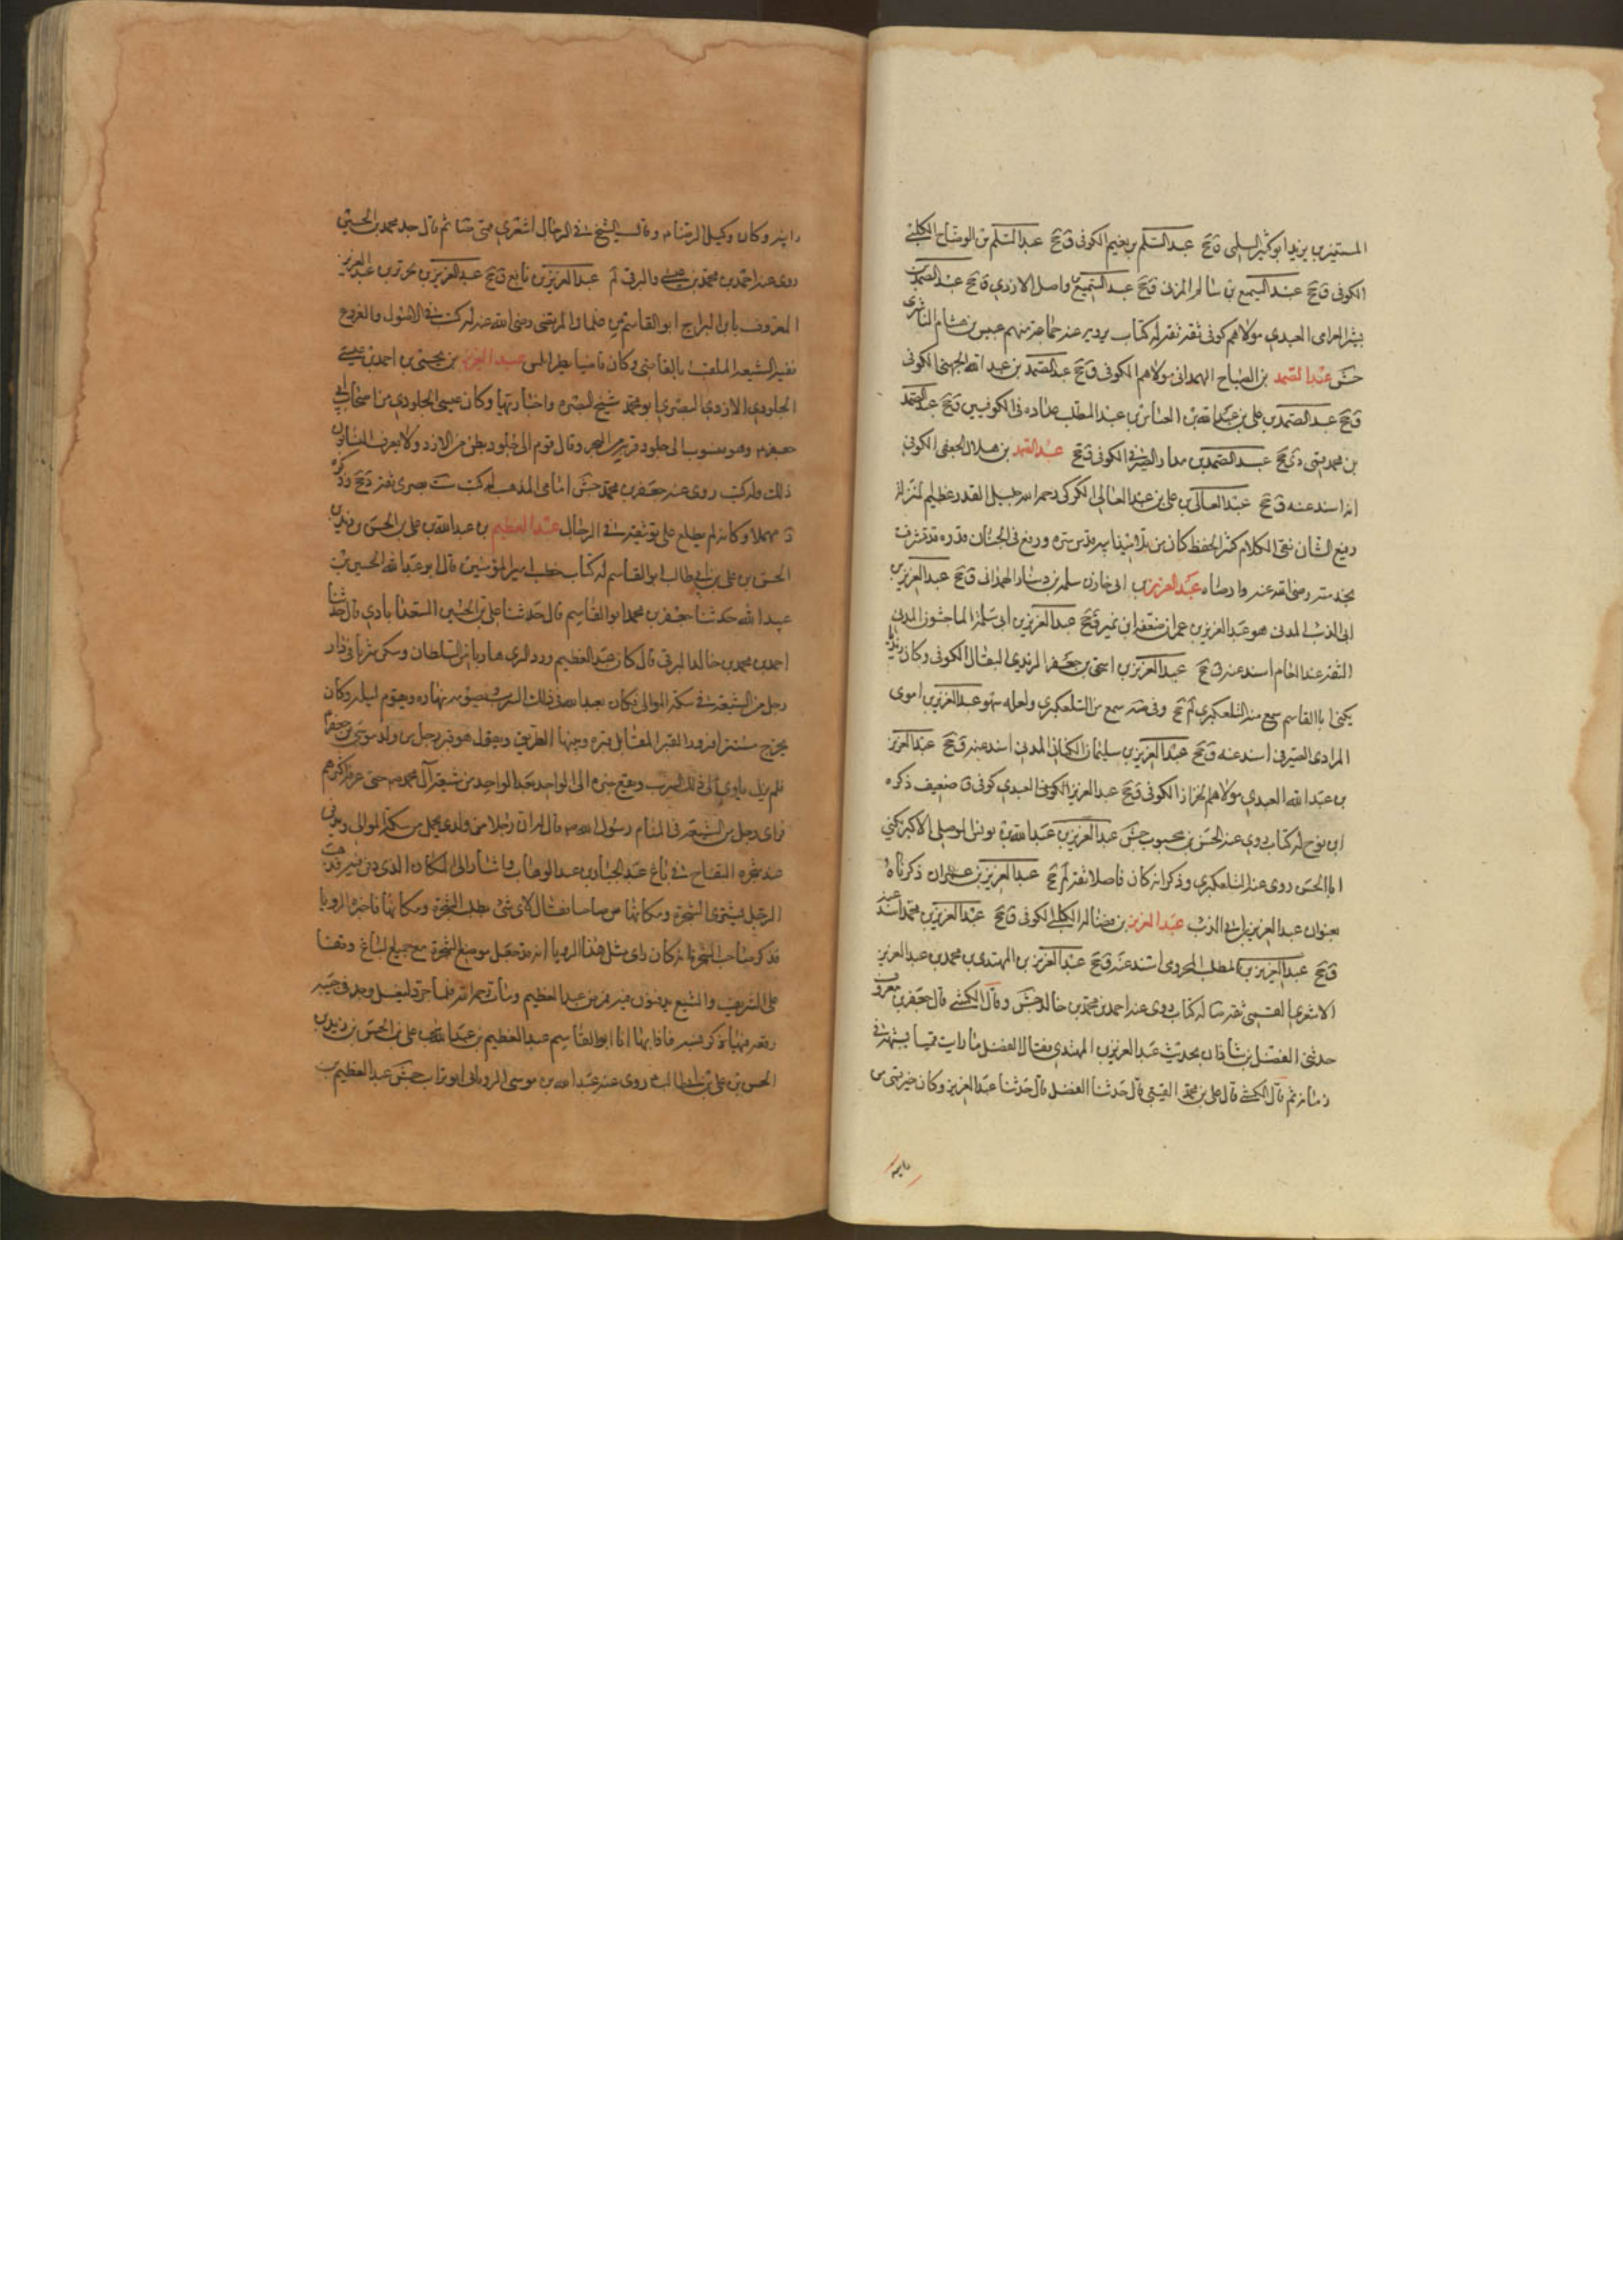 المستنير بن يزيد ابو كثير السلمى ق جح عبد السلم بن نعيم الكوفى ق جح عبد السلم بن الوضاح الكلبى
الكوفى ق جح عبد السميع بن سالم المزنى ق جح عبد السميع واصل الازدي ق جح عبد الصمد بن
بشير العرامى العبدي مولاهم كوفى ثقة ثقة له كتاب يرويه عنه جماعة منهم عبيس بن هشام الناشرى
جش عبد الصمد بن الصباح الهمدانى مولاهم الكوفى ق جح عبد الصمد بن عبد الله الجهنى الكوفى
ق جح عبد الصمد بن على بن عبد الله بن العباس بن عبد المطلب عداده فى الكوفيين ق جح عبد الصمد
بن محمد قمى دى جح عبد الصمد بن مدار الصيرفى الكوفى ق جح عبد الصمد بن هلال الجعفى الكوفى
اند اسند عنه ق جح عبد العالى بن على بن عبد العالى الكركى رحمه الله جليل القدر عظيم المنزلة
رفيع الشان نقى الكلام كثير الحفظ كان من تلاميذ ابيه قدس سره ورفع فى الجنان قدره قد تشرف
بخدمته رضى الله عنه وارضاه عبد العزيز بن ابى خازن سلمة بن دينار الهمدانى ق جح عبد العزيز بن
ابى الذئب المدنى هو عبد العزيز بن عمران ضعفه ابن نمير ق جح عبد العزيز بن ابى سلمة الماجشون المدنى
الثقة عند العام اسند عنه ق جح عبد العزيز بن اسحق بن جعفر الزيدي البقال الكوفى وكان زيديا
يكنى ابا القاسم سمع منه التلعكبري لم جح وفى سمع من التلعكبري ولعله سهو عبد العزيز بن اموى
المرادى الصيرفى اسند عنه ق جح عبد العزيز بن سليمان الكنانى المدنى اسند عنه ق جح عبد العزيز
بن عبد الله العبدي مولاهم الخزاز الكوفى ق جح عبد العزيز الكوفى العبدي كوفى ق ضعيف ذكره
ابن نوح له كتاب روى عنه الحسن بن محبوب جش عبد العزيز بن عبد الله بن يونس الموصلى الاكبر يكنى
ابا الحسن روى عنه التلعكبري وذكر انه كان فاضلا ثقة لم جح عبد العزيز بن عمران ذكرناه
بعنوان عبد العزيز بن ابى الذئب عبد العزيز بن فضالة الكلبى الكوفى ق جح عبد العزيز بن محمد اسند عنه
ق جح عبد العزيز بن المطلب المخزومى اسند عنه ق جح عبد العزيز بن المهتدى بن محمد بن عبد العزيز
الاشعري القمى ثقة له كتاب روى عنه احمد بن محمد بن خالد جش وقال الكشى قال جعفر بن معروف
حدثنى الفضل بن شاذان بحديث عبد العزيز بن المهتدي فقال الفضل ما رايت قميا يشبهه فى
زمانه ثم قال الكشى قال على بن محمد القتيبى قال حدثنا الفضل قال حدثنا عبد العزيز وكان خير قمى من
رايته
رايته وكان وكيل الرضا م وقال الشيخ فى الرجال اشعري قمى ثم قال جد محمد بن الحسين
روى عنه احمد بن محمد بن عيسى والبرقى لم عبد العزيز بن نافع ق جح عبد العزيز بن نحرير بن عبد العزيز
المعروف بابن البراج ابو القاسم من غلمان المرتضى رضى الله عنه له كتب فى الاصول والفروع
فقيه الشيعة الملقب بالقاضى وكان قاضيا بطرابلس عبد العزيز بن يحيى بن احمد بن عيسى
الجلودي الازدي البصري ابو محمد شيخ البصره واخباريها وكان عيسى الجلودي من اصحاب ابى
جعفر م وهو منسوب الى جلود قرية فى البحر وقال قوم الى جلود بطن من الازد ولا يعرف النسابون
ذلك وله كتب روى عنه جعفر بن محمد جش امامى المذهب له كتب ست بصرى ثقة دخ وذكره
د مهملا وكانه لم يطلع على توثيقه فى الرجال عبد العظيم بن عبد الله بن على بن الحسن بن زيد بن
الحسن بن على بن ابى طالب ابو القاسم له كتاب خطب امير المؤمنين قال ابو عبد الله الحسين بن
عبيد الله حدثنا جعفر بن محمد ابو القاسم قال حدثنا على بن الحسين السعدآبادي قال حدثنا
احمد بن محمد بن خالد البرقى قال كان عبد العظيم ورد الرى هاربا من السلطان وسكن سربا فى دار
رجل من الشيعة فى سكة الموالى فكان يعبد الله فى ذلك السرب ويصوم نهاره ويقوم ليله وكان
يخرج مستترا فيزور القبر المقابل قبره وبينهما الطريق ويقول هو قبر رجل من ولد موسى بن جعفر م
فلم يزل ياوي الى ذلك السرب ويقع خبره الى الواحد بعد الواحد من شيعة آل محمد م حتى عرفه اكثرهم
فراى رجل من الشيعة فى المنام رسول الله ص قال له ان رجلا من ولدي يحمل من سكة الموالى ويدفن
عند شجرة التفاح فى باغ عبد الجبار بن عبد الوهاب واشار الى المكان الذى دفن فيه فذهب
الرجل ليشترى الشجرة ومكانها من صاحبها فقال لاى شى يطلب الشجرة ومكانها فاخبره الرويا
فذكر صاحب الشجرة انه كان راى مثل هذا الرويا انه قد جعل موضع الشجرة مع جميع الباغ وقفا
على الشريف والشيع يدفنون فيه فمرض عبد العظيم ومات رحمه الله فلما جرد ليغسل وجد فى جيبه
رقعة فيها ذكر نسبه فاذا فيها انا ابو القاسم عبد العظيم بن عبد الله بن على بن الحسن بن زيد بن
الحسن بن على بن ابى طالب م روى عنه عبد الله بن موسى الرويانى ابو تراب جش عبد العظيم بن